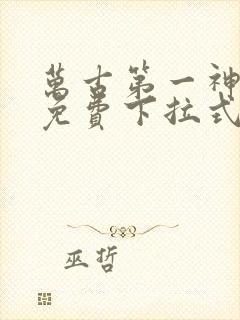 萬古第一神
免費下拉式
巫哲